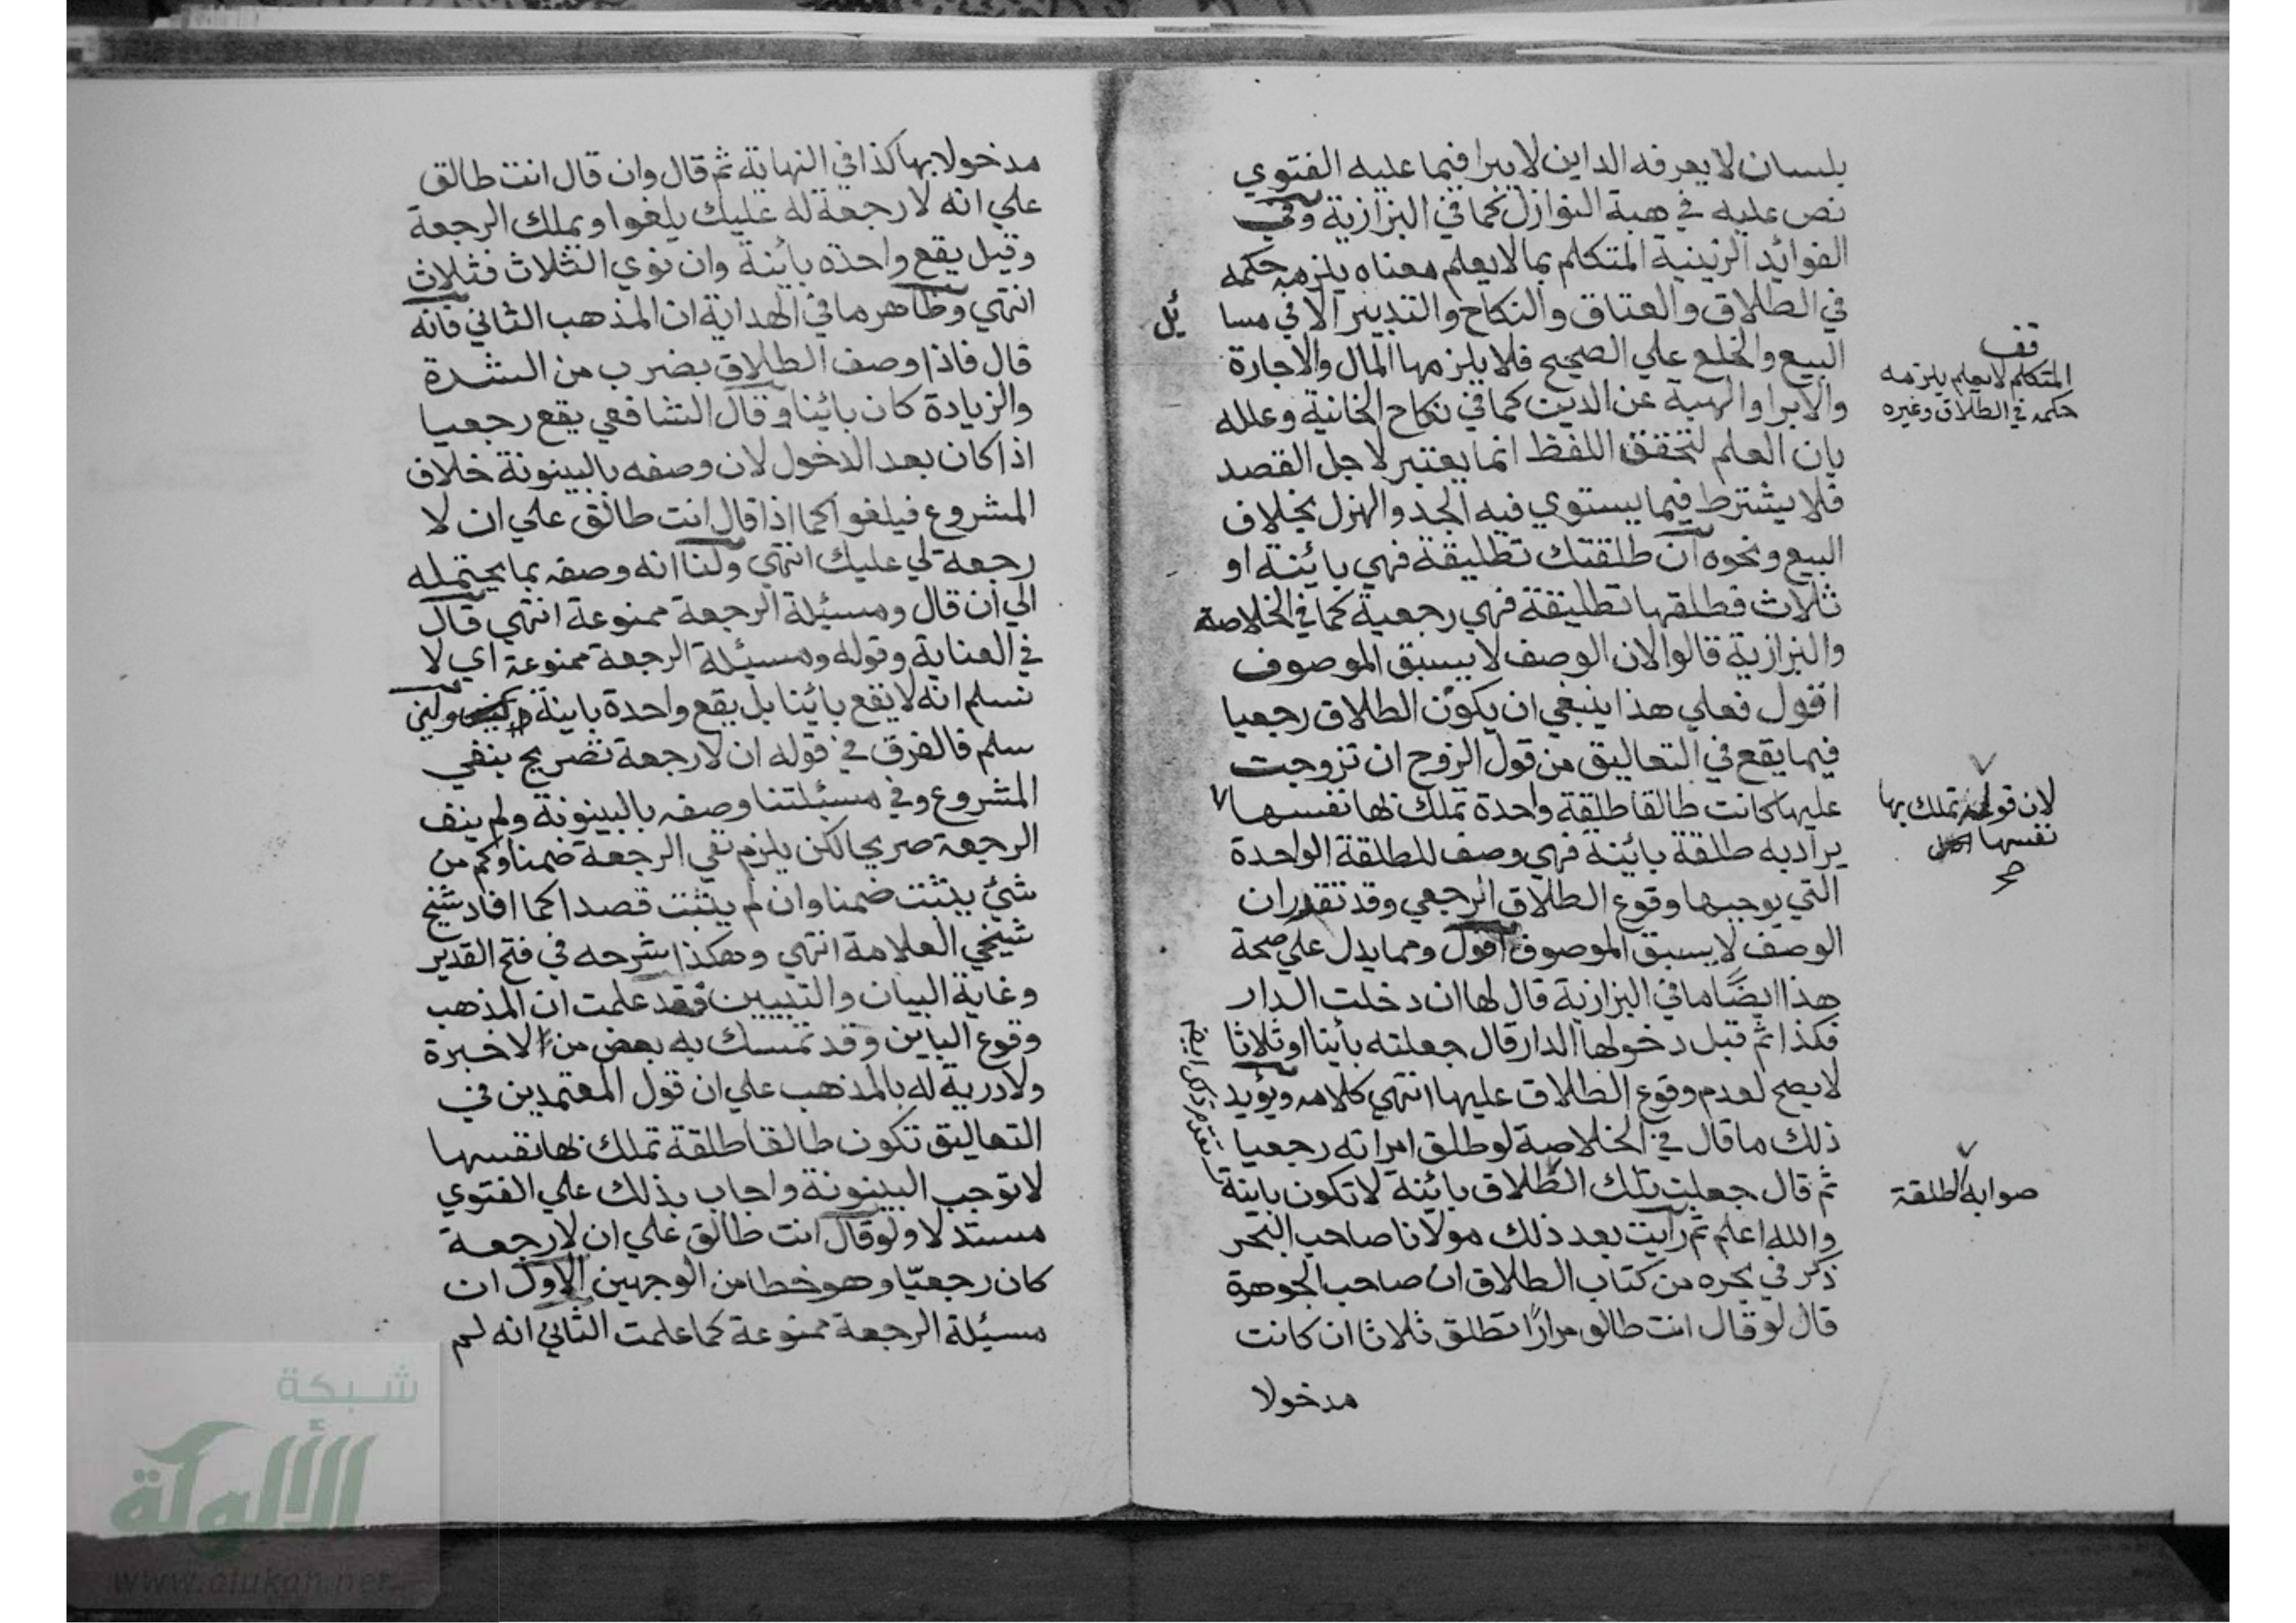 بلسان لا يعرفه الداين لا يبرا فيما عليه الفتوي
نص عليه في هبة النوازل كما في البزازية وفي
الفوائد الزينية المتكلم بما لا يعلم معناه يلزمه حكمه
في الطلاق والعتاق والنكاح والتدبير الا في مسا
ئل
البيع والخلع علي الصحيح فلا يلزمها المال والاجارة
والابرا والهبة عن الدين كما في نكاح الخانية وعلله
بان العلم لتحقق اللفظ انما يعتبر لاجل القصد
فلا يشترط فيما يستوي فيه الجد والهزل بخلاف
البيع ونحوه ان طلقتك تطليقة فهي بائنة او
ثلاث فطلقها تطليقة فهي رجعية كما في الخلاصة
والبزازية قالوا لان الوصف لا يسبق الموصوف
اقول فعلي هذا ينبغي ان يكون الطلاق رجعيا
فيما يقع في التعاليق من قول الزوج ان تزوجت
عليها كانت طالقا طلقة واحدة تملك بها نفسها
يراد به طلقة بائنة فهي وصف للطلقة الواحدة
التي يوجبها وقوع الطلاق الرجعي وقد تقدر ان
الوصف لا يسبق الموصوف اقول ومما يدل علي صحة
هذا ايضًا ما في البزازية قال لها ان دخلت الدار
فكذا ثم قبل دخولها الدار قال جعلته بائنا او ثلاثا
لا يصح لعدم وقوع الطلاق عليها انتهي كلامه ويؤيد
ذلك ما قال في الخلاصة لو طلق امراته رجعيا
ثم قال جعلت تلك الطلاق بائنة لا تكون باينة
والله اعلم ثم رايت بعد ذلك مولانا صاحب البحر
ذكر في بحره من كتاب الطلاق ان صاحب الجوهرة
قال لو قال انت طالق مرارًا تطلق ثلاثا ان كانت
مدخولا
قف
المتكلم لا يعلم يلزمه
حكمه في الطلاق وغيره
لان قوله تملك بها
نفسها
صح
صوابه الطلقة
مدخولا بها كذا في النهاية ثم قال وان قال انت طالق
علي انه لا رجعة له عليك يلغوا ويملك الرجعة
وقيل يقع واحدة بائنة وان نوي الثلاث فثلاث
انتهي وظاهر ما في الهداية ان المذهب الثاني فانه
قال فاذا وصف الطلاق بضرب من الشدة
والزيادة كان بائنا وقال الشافعي يقع رجعيا
اذا كان بعد الدخول لان وصفه بالبينونة خلاف
المشروع فيلغوا كما اذا قال انت طالق علي ان لا
رجعة لي عليك انتهي ولنا انه وصفه بما يحتمله
الي ان قال ومسئلة الرجعة ممنوعة انتهي قال
في العناية وقوله ومسئلة الرجعة ممنوعة اي لا
نسلم انه لا يقع بائنا بل يقع واحدة باينة ولئن
سلم فالفرق في قوله ان لا رجعة تصريح بنفي
المشروع وفي مسئلتنا وصفه بالبينونة ولم ينف
الرجعة صريحا لكن يلزم نفي الرجعة ضمنا وكم من
شئ يثبت ضمنا وان لم يثبت قصدا كما افاد شيخ
شيخي العلامة انتهي وهكذا شرحه في فتح القدير
وغاية البيان والتبيين فقد علمت ان المذهب
وقوع الباين وقد تمسك به بعض من لا خبرة
ولا درية له بالمذهب علي ان قول المعتمدين في
التعاليق تكون طالقا طلقة تملك بها نفسها
لا توجب البينونة واجاب بذلك علي الفتوي
مستدلا ولو قال انت طالق علي ان لا رجعة
كان رجعيّا وهو خطا من الوجهين الاول ان
مسئلة الرجعة ممنوعة كما علمت الثاني انه لم
شبكة
الألوكة
www.alukah.net